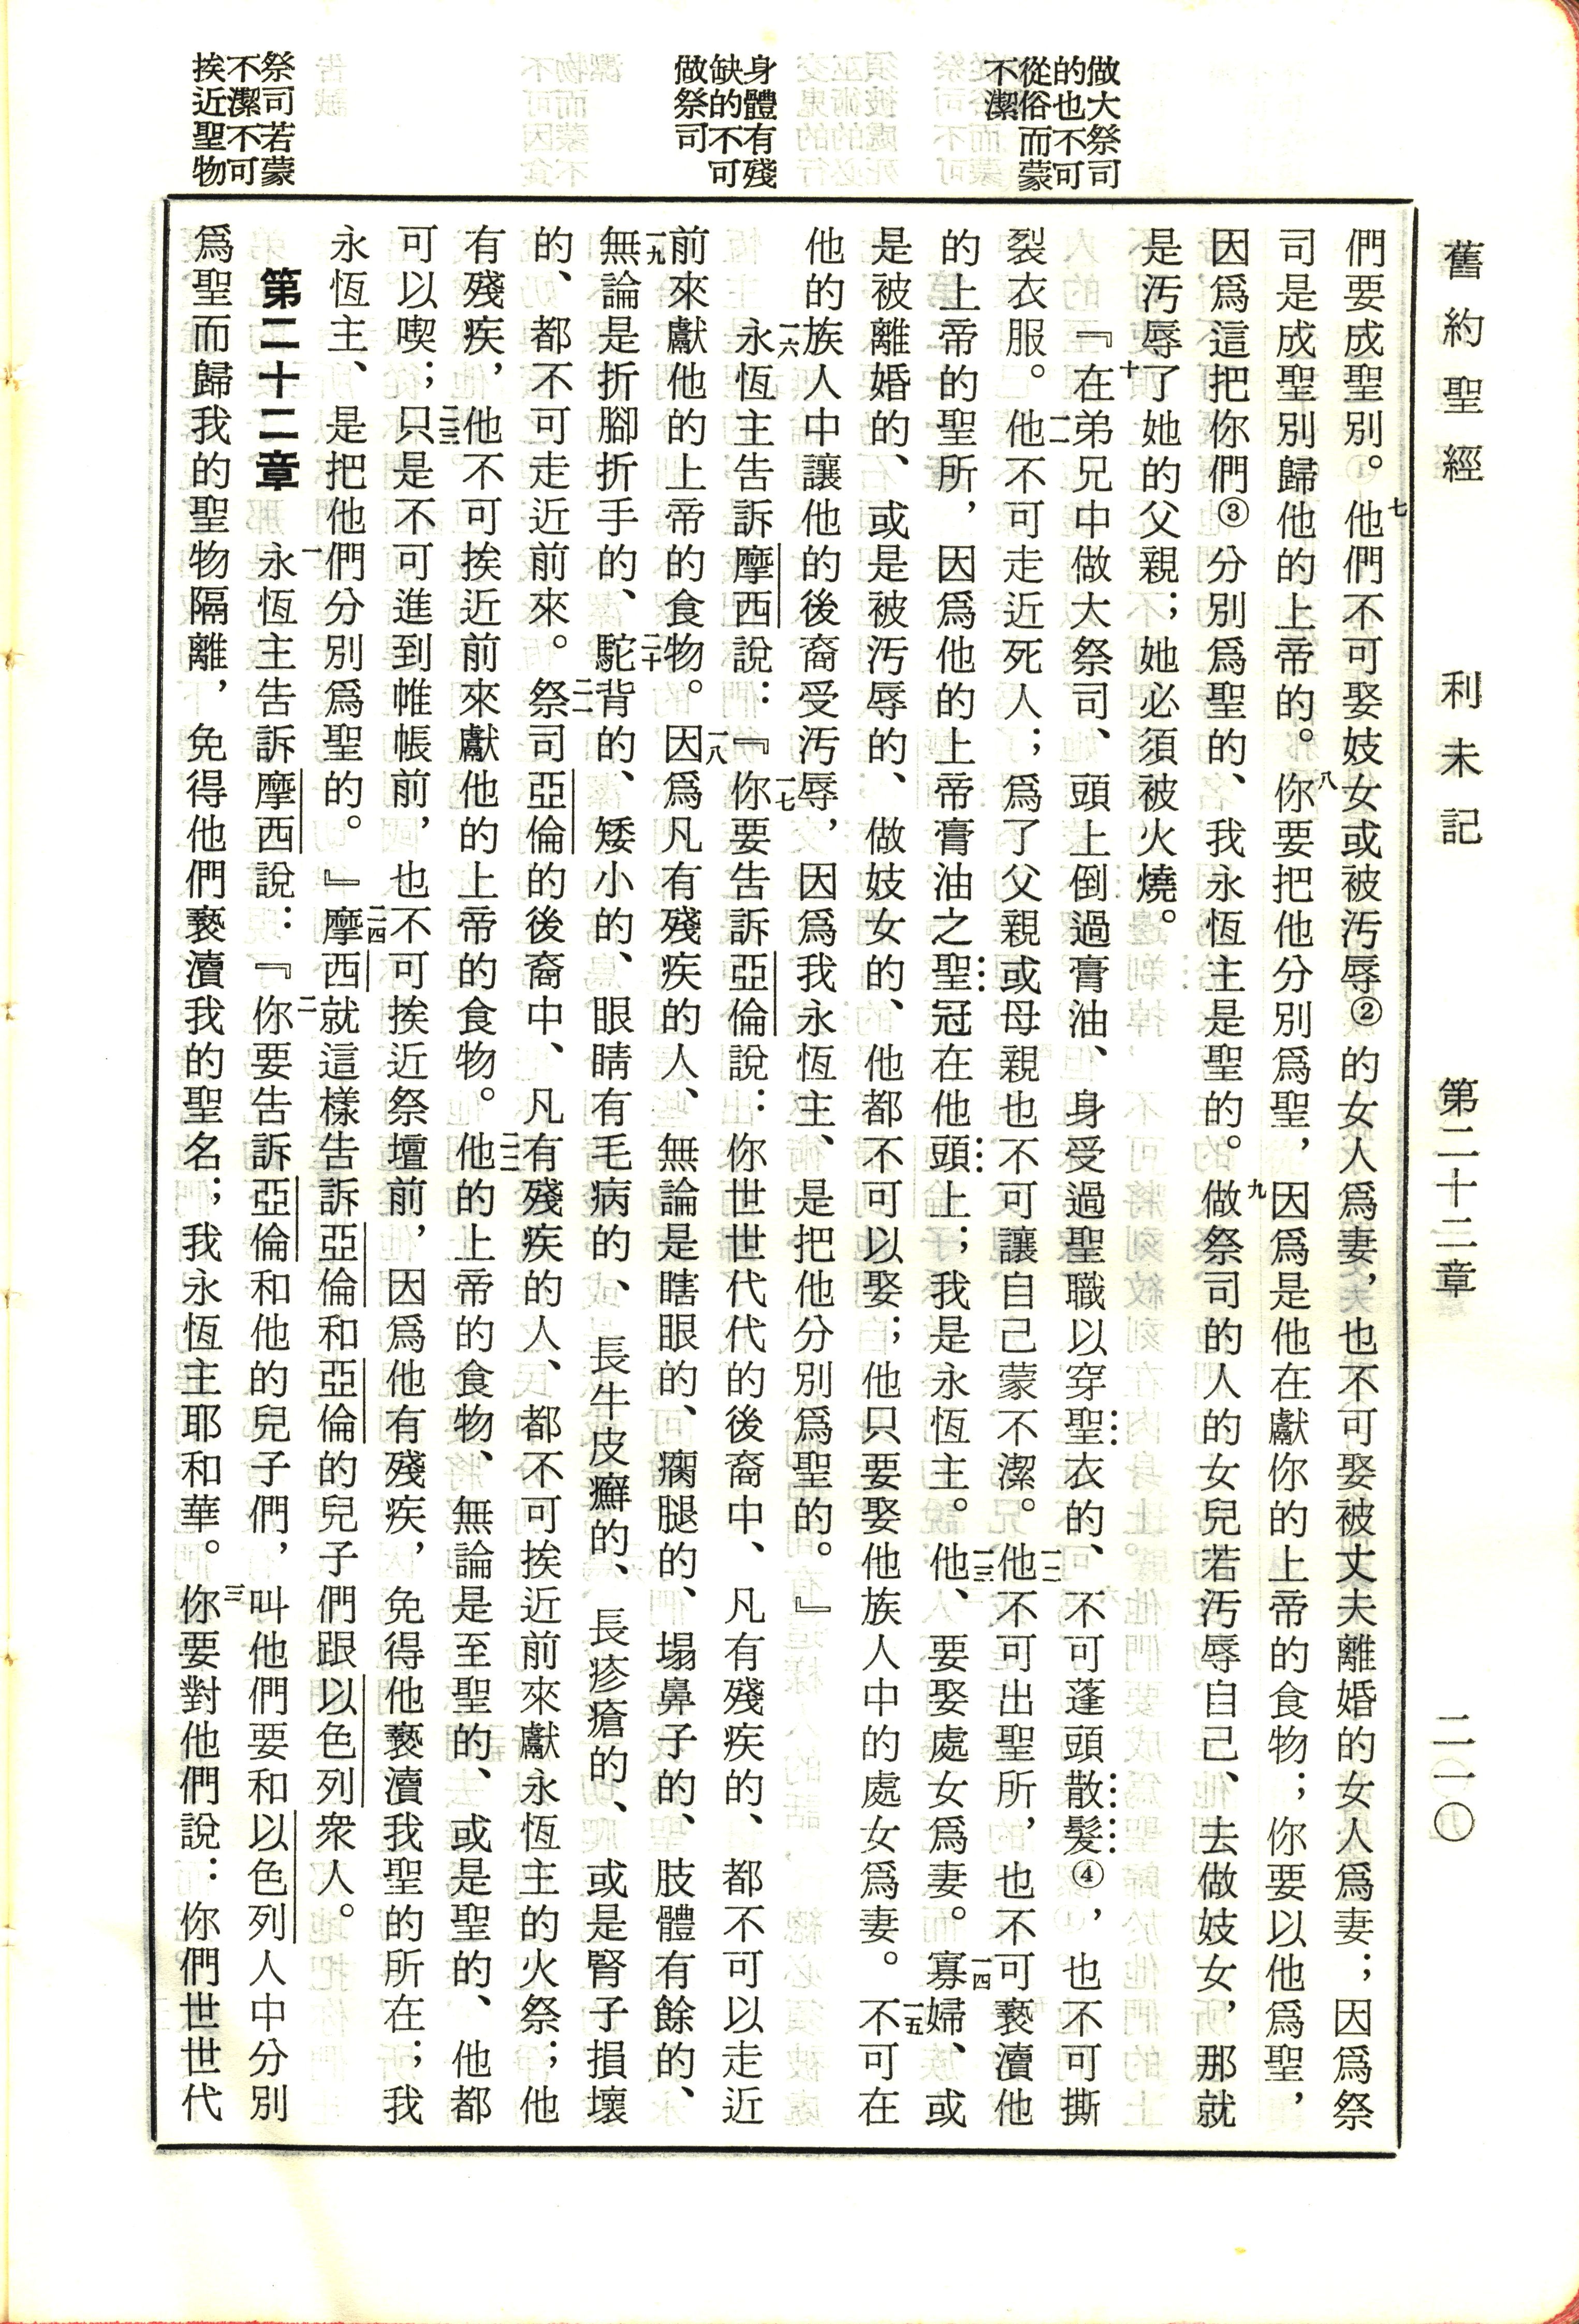 舊約聖經　利未記　第二十二章　二一〇
做大祭司
的也不可
從俗而蒙
不潔
身體有殘
缺的不可
做祭司
祭司若蒙
不潔不可
挨近聖物
們要成聖別。七他們不可娶妓女或被汚辱②的女人爲妻，也不可娶被丈夫離婚的女人爲妻；因爲祭
司是成聖別歸他的上帝的。八你要把他分別爲聖，因爲是他在獻你的上帝的食物；你要以他爲聖，
因爲這把你們③分別爲聖的、我永恆主是聖的。九做祭司的人的女兒若汚辱自己、去做妓女，那就
是汚辱了她的父親；她必須被火燒。
十『在弟兄中做大祭司、頭上倒過膏油、身受過聖職以穿聖衣的、不可蓬頭散髮④，也不可撕
裂衣服。一一他不可走近死人；爲了父親或母親也不可讓自己蒙不潔。一二他不可出聖所，也不可褻瀆他
的上帝的聖所，因爲他的上帝膏油之聖冠在他頭上；我是永恆主。一三他、要娶處女爲妻。一四寡婦、或
是被離婚的、或是被汚辱的、做妓女的、他都不可以娶；他只要娶他族人中的處女爲妻。一五不可在
他的族人中讓他的後裔受汚辱，因爲我永恆主、是把他分別爲聖的。』
一六永恆主告訴摩西說：一七『你要告訴亞倫說：你世世代代的後裔中、凡有殘疾的、都不可以走近
前來獻他的上帝的食物。一八因爲凡有殘疾的人、無論是瞎眼的、瘸腿的、塌鼻子的、肢體有餘的、
一九無論是折腳折手的、二十駝背的、矮小的、眼睛有毛病的、長牛皮癬的、長疹瘡的、或是腎子損壞
的、都不可走近前來。二一祭司亞倫的後裔中、凡有殘疾的人、都不可挨近前來獻永恆主的火祭；他
有殘疾，他不可挨近前來獻他的上帝的食物。二二他的上帝的食物、無論是至聖的、或是聖的、他都
可以喫；二三只是不可進到帷帳前，也不可挨近祭壇前，因爲他有殘疾，免得他褻瀆我聖的所在；我
永恆主、是把他們分別爲聖的。』二四摩西就這樣告訴亞倫和亞倫的兒子們跟以色列衆人。
第二十二章　一永恆主告訴摩西說：二『你要告訴亞倫和他的兒子們，叫他們要和以色列人中分別
爲聖而歸我的聖物隔離，免得他們褻瀆我的聖名；我永恆主耶和華。三你要對他們說：你們世世代